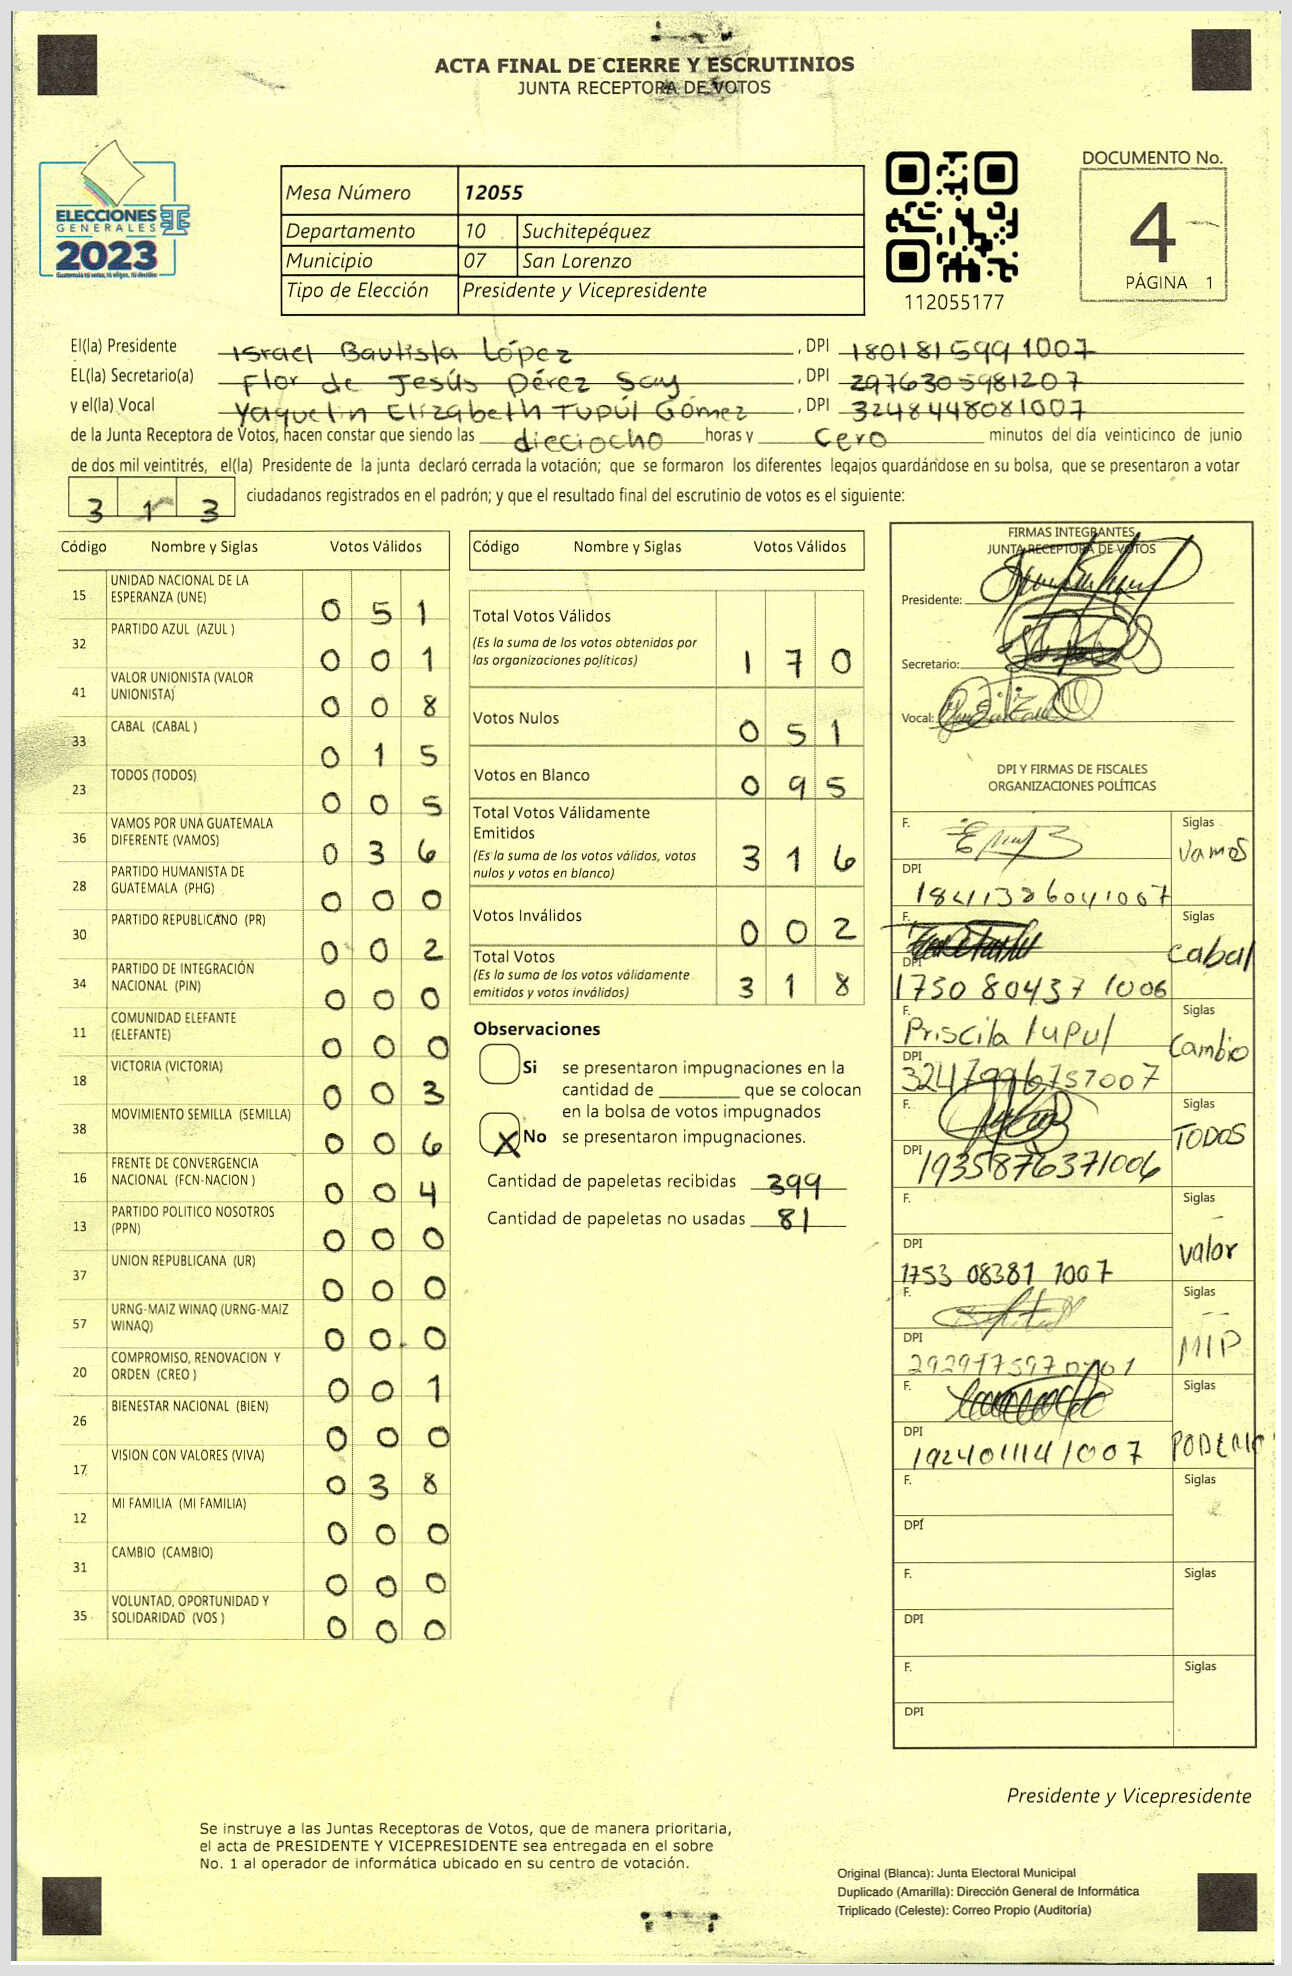 ACTA FINAL DE CIERRE Y ESCRUTINIOS
JUNTA RECEPTORA DE VOTOS
ELECCIONES
GENERALES
2023
Mesa Número 12055
Departamento 10 Suchitepéquez
Municipio 07 San Lorenzo
Tipo de Elección Presidente y Vicepresidente
112055177
DOCUMENTO No.
4
PÁGINA 1
El(la) Presidente Israel Bautista López , DPI 1801815991007
EL(la) Secretario(a) Flor de Jesús Pérez Say , DPI 2976305981207
y el(la) Vocal Yaquelin Elizabeth Tupúl Gómez , DPI 3248448081007
de la Junta Receptora de Votos, hacen constar que siendo las dieciocho horas y cero minutos del día veinticinco de junio
de dos mil veintitrés, el(la) Presidente de la junta declaró cerrada la votación; que se formaron los diferentes legajos guardándose en su bolsa, que se presentaron a votar
3 1 3 ciudadanos registrados en el padrón; y que el resultado final del escrutinio de votos es el siguiente:
Código Nombre y Siglas Votos Válidos
15 UNIDAD NACIONAL DE LA
ESPERANZA (UNE) 0 5 1
32 PARTIDO AZUL (AZUL ) 0 0 1
41 VALOR UNIONISTA (VALOR
UNIONISTA) 0 0 8
33 CABAL (CABAL ) 0 1 5
23 TODOS (TODOS) 0 0 5
36 VAMOS POR UNA GUATEMALA
DIFERENTE (VAMOS) 0 3 6
28 PARTIDO HUMANISTA DE
GUATEMALA (PHG) 0 0 0
30 PARTIDO REPUBLICANO (PR) 0 0 2
34 PARTIDO DE INTEGRACIÓN
NACIONAL (PIN) 0 0 0
11 COMUNIDAD ELEFANTE
(ELEFANTE) 0 0 0
18 VICTORIA (VICTORIA) 0 0 3
38 MOVIMIENTO SEMILLA (SEMILLA) 0 0 6
16 FRENTE DE CONVERGENCIA
NACIONAL (FCN-NACION ) 0 0 4
13 PARTIDO POLITICO NOSOTROS
(PPN) 0 0 0
37 UNION REPUBLICANA (UR) 0 0 0
57 URNG-MAIZ WINAQ (URNG-MAIZ
WINAQ) 0 0 0
20 COMPROMISO, RENOVACION Y
ORDEN (CREO ) 0 0 1
26 BIENESTAR NACIONAL (BIEN) 0 0 0
17 VISION CON VALORES (VIVA) 0 3 8
12 MI FAMILIA (MI FAMILIA) 0 0 0
31 CAMBIO (CAMBIO) 0 0 0
35 VOLUNTAD, OPORTUNIDAD Y
SOLIDARIDAD (VOS ) 0 0 0
Código Nombre y Siglas Votos Válidos
Total Votos Válidos
(Es la suma de los votos obtenidos por
las organizaciones políticas) 1 7 0
Votos Nulos 0 5 1
Votos en Blanco 0 9 5
Total Votos Válidamente
Emitidos
(Es la suma de los votos válidos, votos
nulos y votos en blanco) 3 1 6
Votos Inválidos 0 0 2
Total Votos
(Es la suma de los votos válidamente
emitidos y votos inválidos) 3 1 8
Observaciones
Si se presentaron impugnaciones en la
cantidad de ________ que se colocan
en la bolsa de votos impugnados
X No se presentaron impugnaciones.
Cantidad de papeletas recibidas 399
Cantidad de papeletas no usadas 81
FIRMAS INTEGRANTES
JUNTA RECEPTORA DE VOTOS
Presidente:
Secretario:
Vocal:
DPI Y FIRMAS DE FISCALES
ORGANIZACIONES POLÍTICAS
F. Siglas
Vamos
DPI
1841326041007
F. Siglas
Cabal
DPI
1750 80437 1006
F. Siglas
Priscila Tupul Cambio
DPI
F. Siglas
TODOS
DPI 1935876371006
F. Siglas
Valor
DPI
1753 08381 1007
F. Siglas
MIP
DPI
F. Siglas
PODEMOS
DPI
1924011141007
F. Siglas
DPI
F. Siglas
DPI
F. Siglas
DPI
Presidente y Vicepresidente
Se instruye a las Juntas Receptoras de Votos, que de manera prioritaria,
el acta de PRESIDENTE Y VICEPRESIDENTE sea entregada en el sobre
No. 1 al operador de informática ubicado en su centro de votación.
Original (Blanca): Junta Electoral Municipal
Duplicado (Amarilla): Dirección General de Informática
Triplicado (Celeste): Correo Propio (Auditoría)